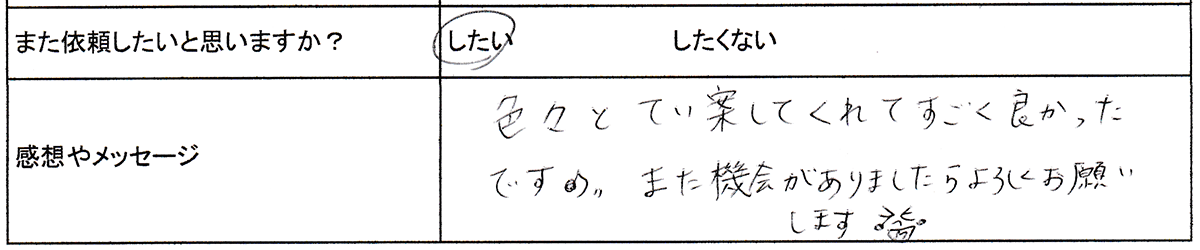 また依頼したいと思いますか？
したい したくない
感想やメッセージ
色々とてい案してくれてすごく良かった
です。また機会がありましたらよろしくお願い
します